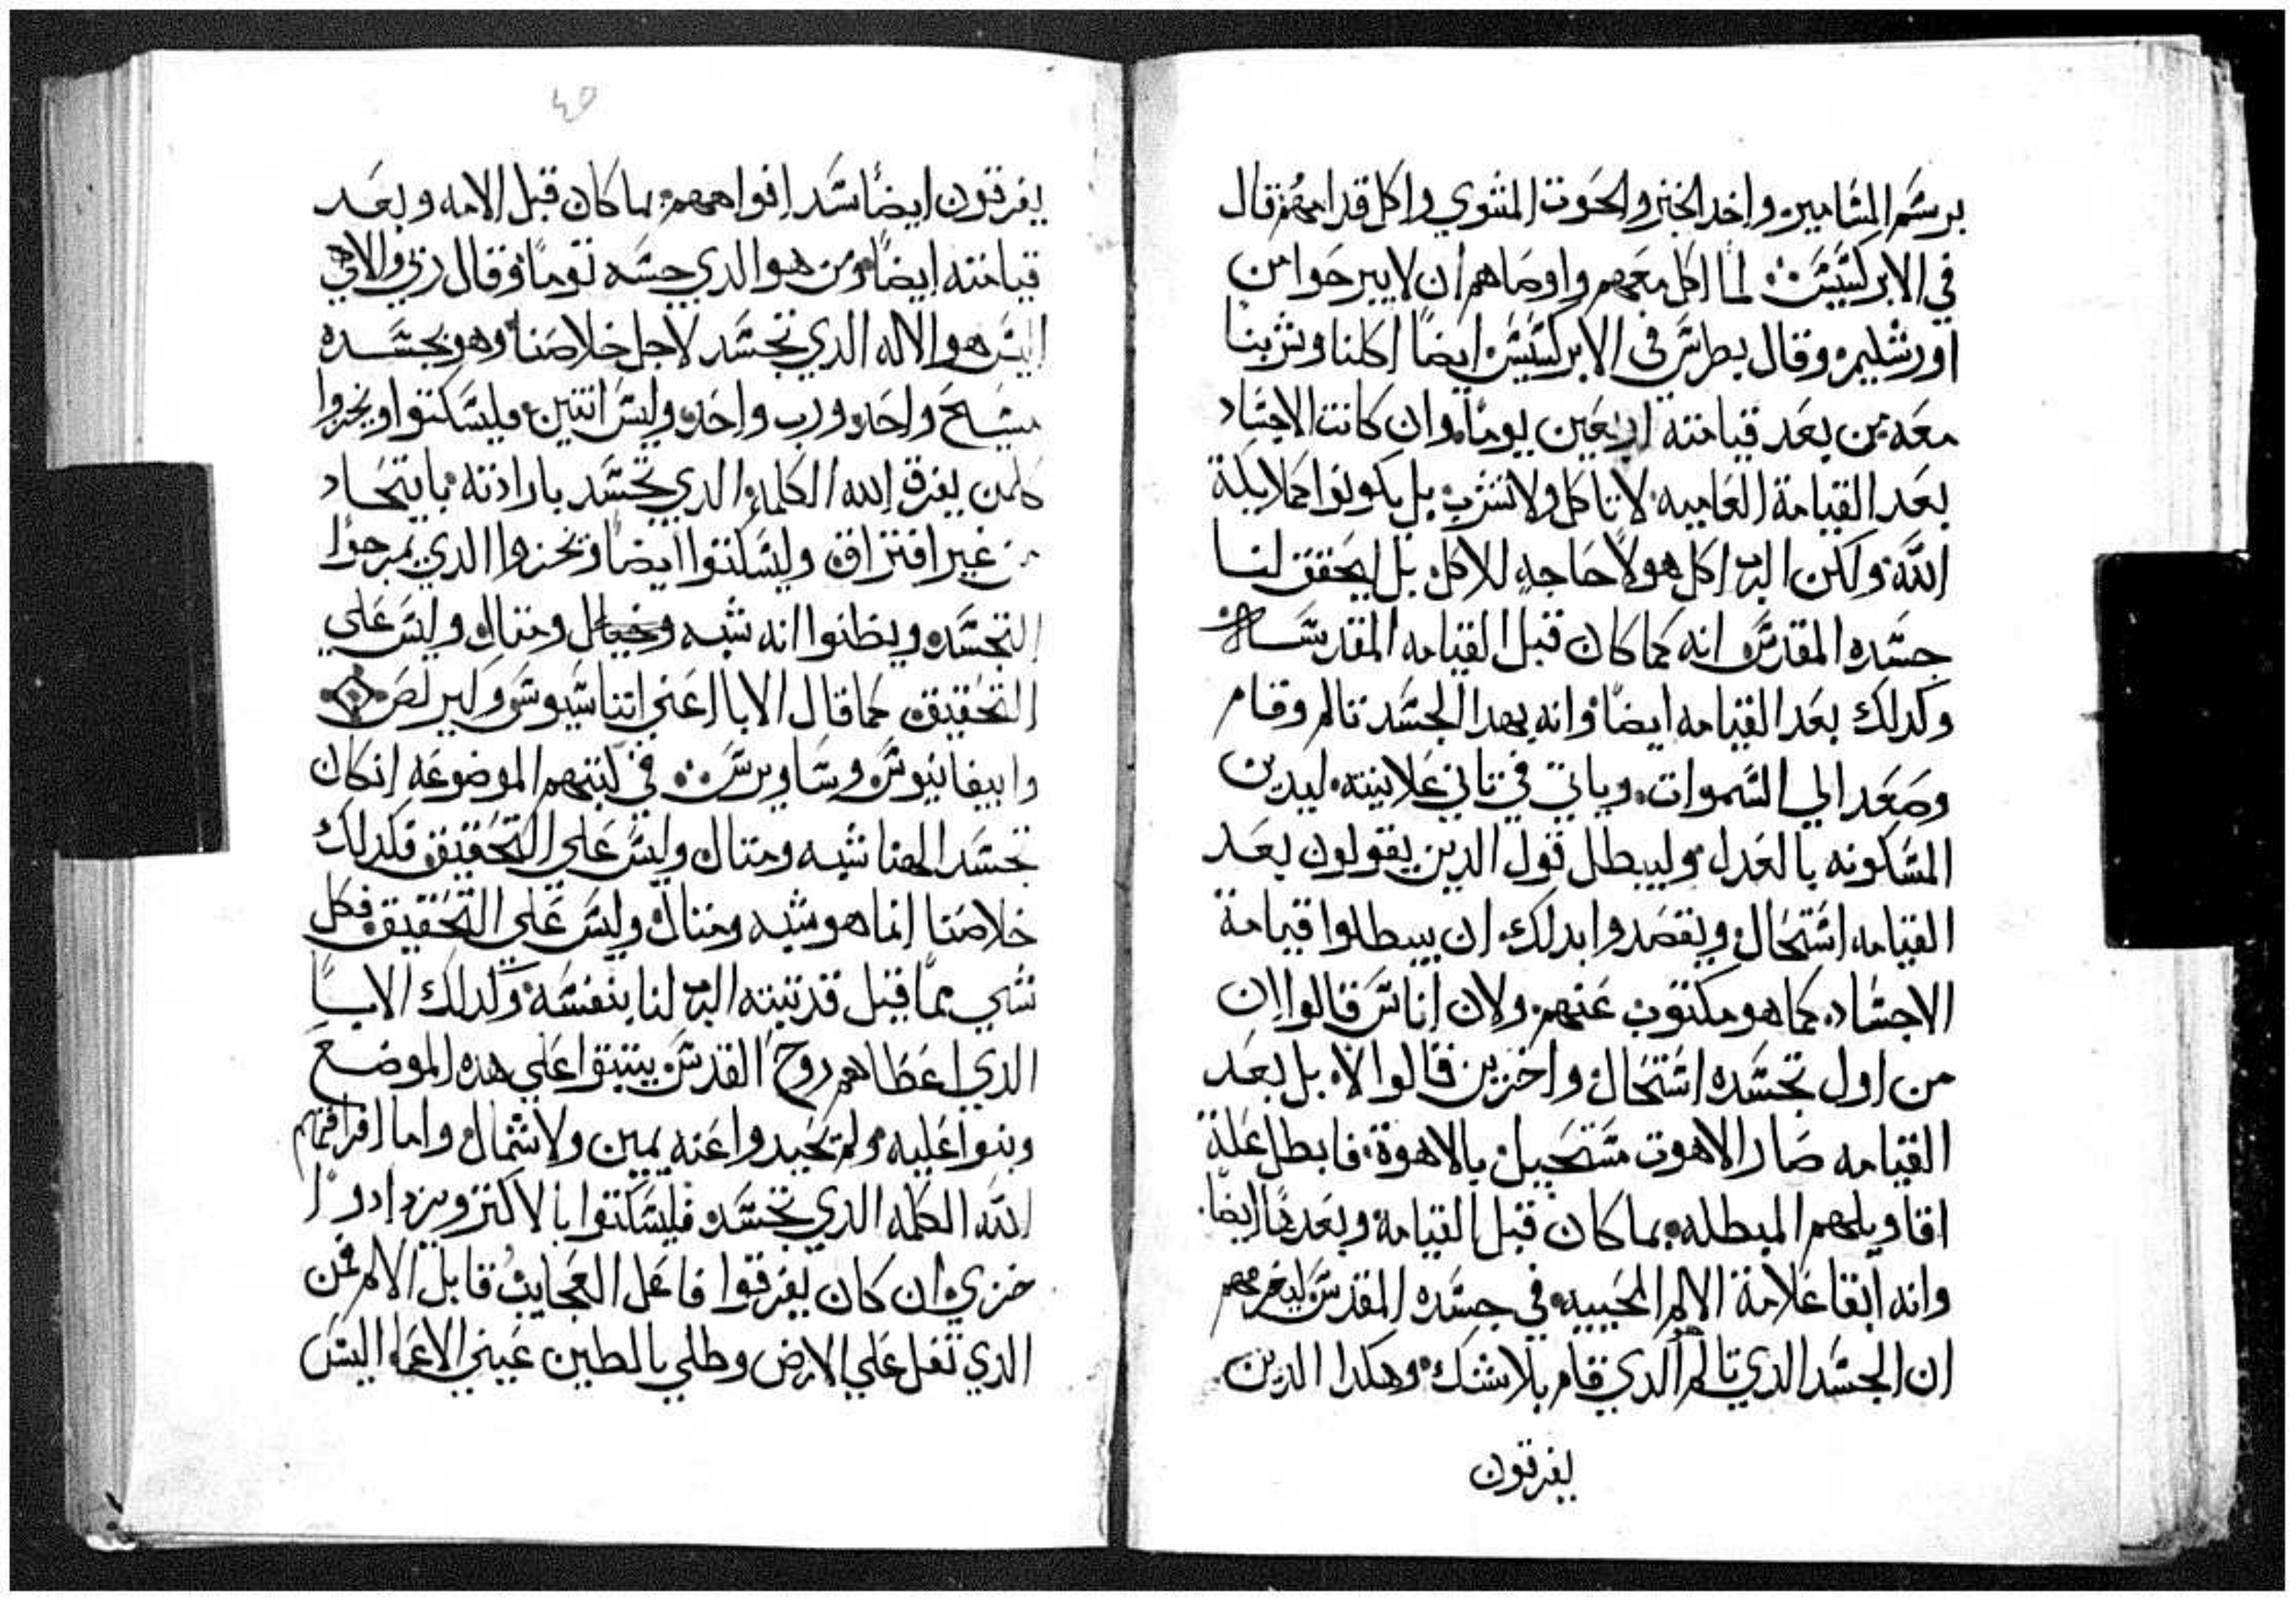 برسم المسامير واخد الخبز والحوت المشوي واكل قدامهم قال
في الابركسيس لما اكل معهم واوصاهم ان لا يبرحوا من
اورشليم وقال بطرس في الابركسيس ايضًا اكلنا وشربنا
معه من بعد قيامته اربعين يومًا وان كانت الاجساد
بعد القيامة العاميه لا تاكل ولا تشرب بل يكونوا كملايكة
الله ولكن الرب اكل هو لا حاجه للاكل بل ليحقق لنا
جسده المقدس انه كما كان قبل القيامه المقدسه
وكدلك بعد القيامه ايضًا وانه بهدا الجسد تالم وقام
وصعد الي السموات وياتي في تاني علانيته ليدين
المسكونه بالعدل وليبطل قول الدين يقولون بعد
القيامه استحال ويقصدوا بدلك ان يبطلوا قيامة
الاجساد كما هو مكتوب عنهم ولان اناس قالوا ان
من اول تجسده استحال واخرين قالوا لا بل بعد
القيامه صار الاهوت مستحيل بالاهوة فابطل علة
اقاويلهم المبطله بما كان قبل القيامة وبعدها ايضًا
وانه ابقا علامة الالم المحييه في جسده المقدس ليخرجهم
ان الجسد الدي تالم الدي قام بلا شك وهكدا الدين
يفرقون
٤٥
يفرقون ايضًا سد افواههم بما كان قبل الامه وبعد
قيامته ايضًا ومن هو الدي جسه توما وقال ربي والاهي
اليس هو الاله الدي تجسد لاجل خلاصنا وهو بجسده
مسيح واحد ورب واحد وليس اتنين فليسكتوا ويخزوا
كلمن يفرق الله الكلمه الدي تجسد بارادته باتحاد
من غير افتراق وليسكتوا ايضًا ويخزوا الدي يمرحوا
التجسد ويظنوا انه شبه وخيال ومتال وليس علي
التحقيق كما قال الابا اعني اتناسيوس وكيرلص
وابيفانيوس وساويرس في كتبهم الموضوعه انكان
تجسد الهنا شبه ومتال وليس علي التحقيق فكدلك
خلاصنا انما هو شبه ومتال وليس علي التحقيق فكل
شي مما قيل قد تبته الرب لنا بنفسه وكدلك الابا
الدي اعطاهم روح القدس يتبتوا علي هده الموضع
وبنوا عليه ولم يحيدوا عنه يمين ولا شمال واما افراقهم
الله الكلمه الدي تجسد فليسكتوا بالاكتر ويزدادوا
خزي ان كان يفرقوا فاعل العجايب قابل الالم فمن
الدي تفل علي الارض وطلي بالطين عيني الاعما اليس